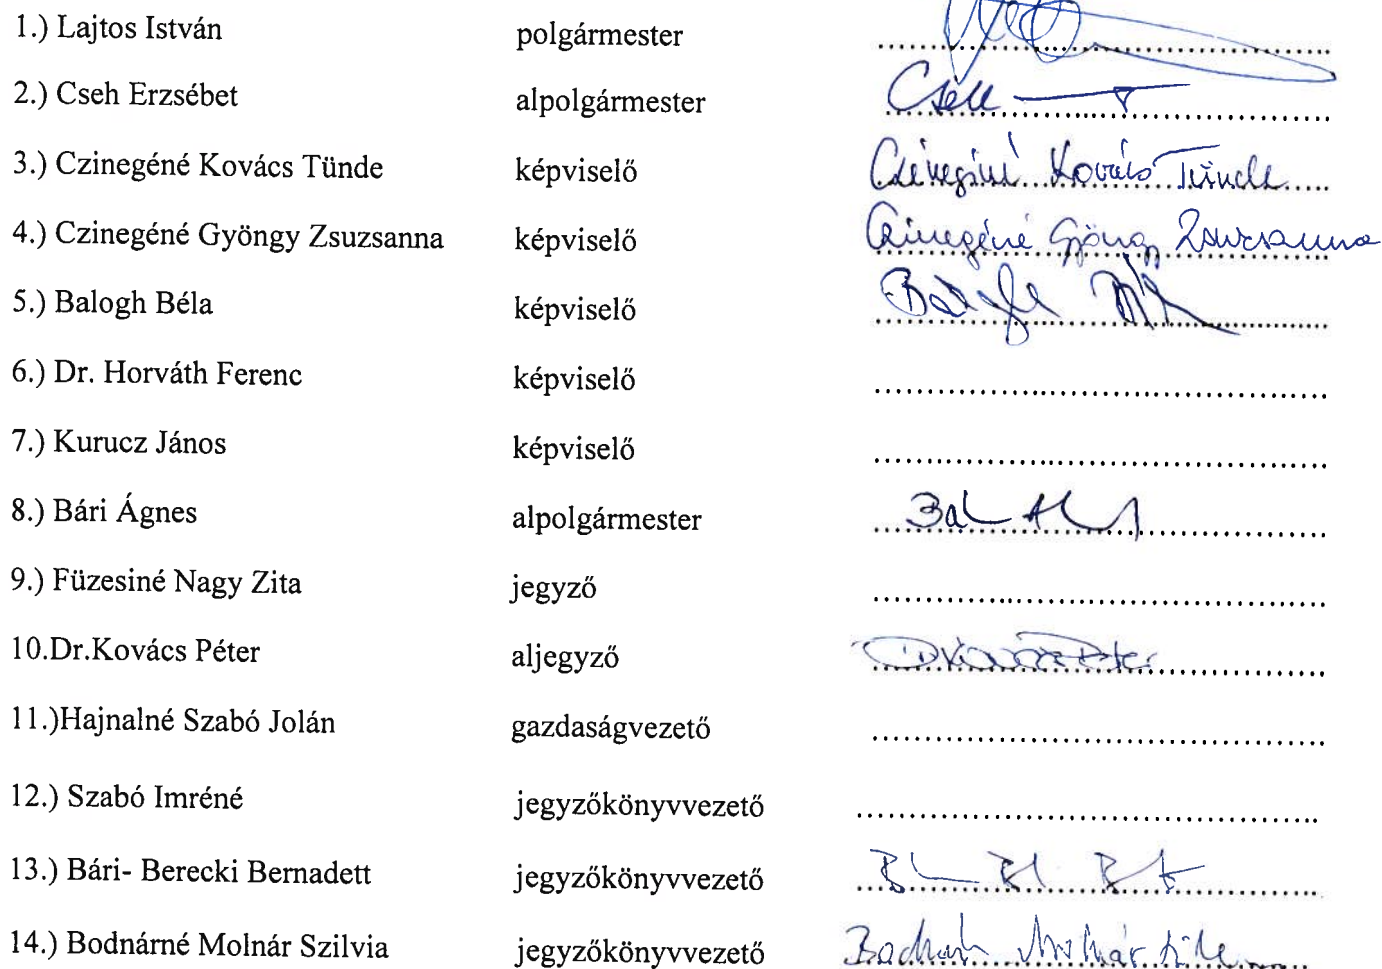 1.) Lajtos István polgármester
2.) Cseh Erzsébet alpolgármester Cseh
3.) Czinegéné Kovács Tünde képviselő Czinegéné Kovács Tünde
4.) Czinegéné Gyöngy Zsuzsanna képviselő Czinegéné Gyöngy Zsuzsanna
5.) Balogh Béla képviselő Balogh Béla
6.) Dr. Horváth Ferenc képviselő
7.) Kurucz János képviselő
8.) Bári Ágnes alpolgármester
9.) Füzesiné Nagy Zita jegyző
10.Dr.Kovács Péter aljegyző Dr Kovács Péter
11.)Hajnalné Szabó Jolán gazdaságvezető
12.) Szabó Imréné jegyzőkönyvvezető
13.) Bári- Berecki Bernadett jegyzőkönyvvezető
14.) Bodnárné Molnár Szilvia jegyzőkönyvvezető Molnár